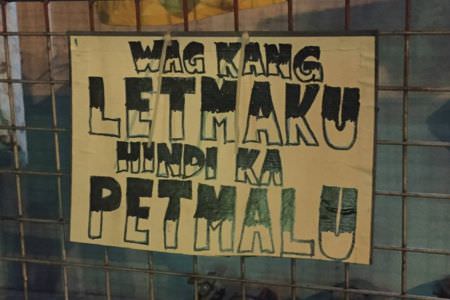 WAG KANG
LETMAKU
HINDI KA
PETMALU